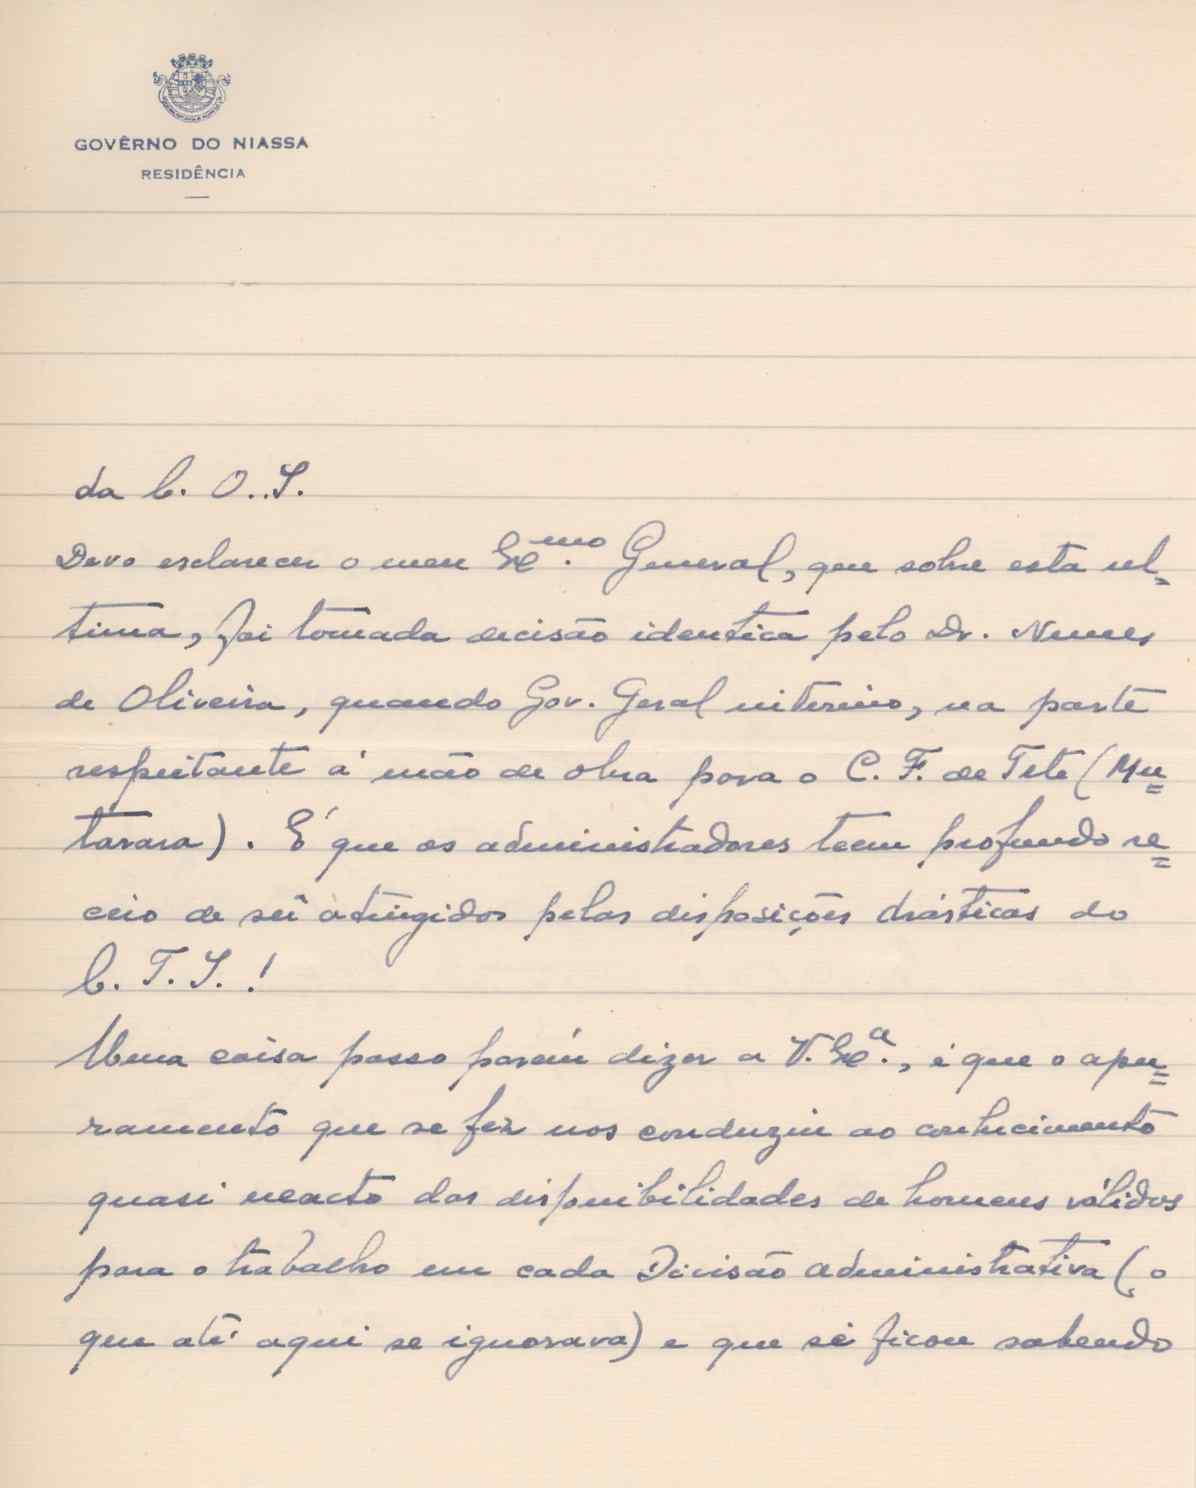 GOVÊRNO DO NIASSA
RESIDÊNCIA
da C. O. S.
Devo esclarecer o meu Exmo. General, que sobre esta ul=
tima, foi tomada decisão identica pelo Dr. Nunes
de Oliveira, quando Gov. Geral interino, na parte
respeitante á mão de obra para o C. F. de Tete (Mu=
tarara). É que os administradores teem profundo re=
ceio de ser atingidos pelas disposições drásticas do
C. T. I. !
Uma coisa posso porém dizer a V. Exa., é que o apu=
ramento que se fez nos conduziu ao conhecimento
quasi exacto das disponibilidades de homens válidos
para o trabalho em cada Divisão administrativa (o
que até aqui se ignorava) e que se ficou sabendo